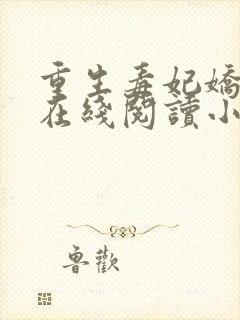 重生毒妃嬌
在綫閱讀小
魯歡